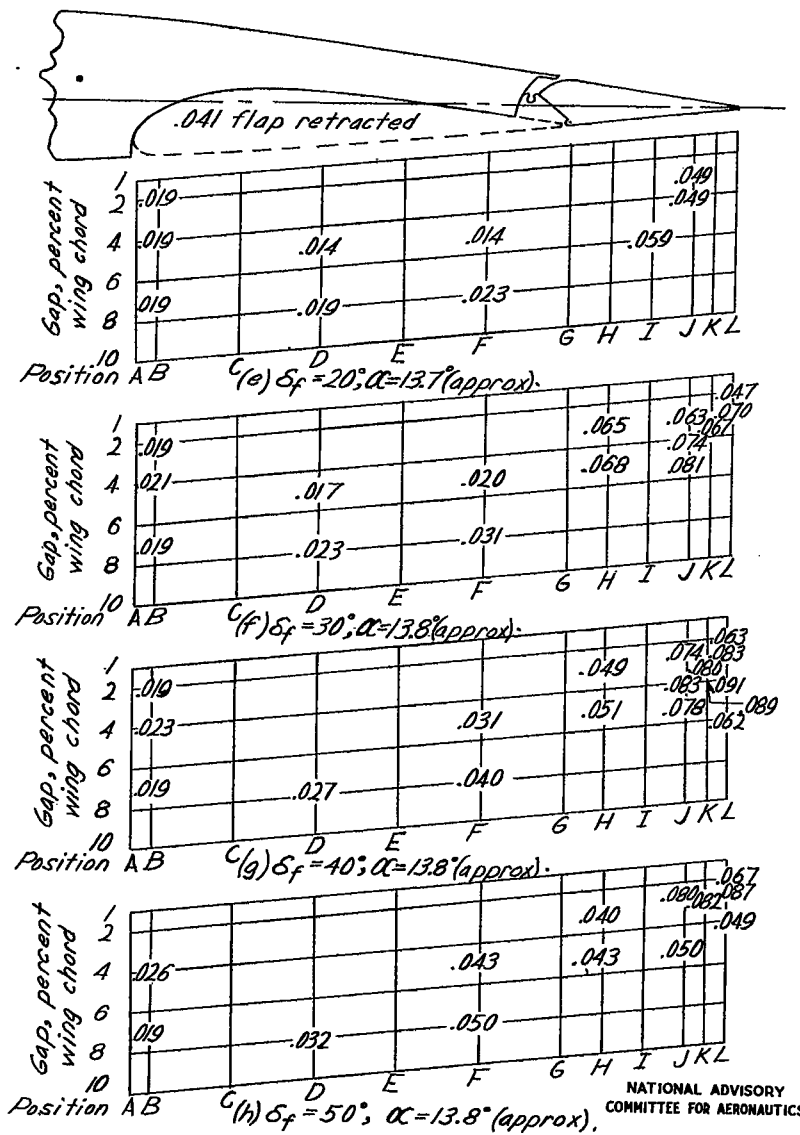 .041 flap retracted
Gap, percent wing chord
1
2
4
6
8
10
.019
.049
.049
.019
.014
.014
.059
.019
.019
.023
Position A B C D E F G H I J K L
(e) δf = 20°; α = 13.7° (approx).
Gap, percent wing chord
1
2
4
6
8
10
.047
.019
.065
.063
.070
.067
.074
.021
.017
.020
.068
.081
.019
.023
.031
Position A B C D E F G H I J K L
(f) δf = 30°; α = 13.8° (approx).
Gap, percent wing chord
1
2
4
6
8
10
.063
.019
.049
.074
.083
.080
.083
.091
.023
.031
.051
.078
.089
.062
.019
.027
.040
Position A B C D E F G H I J K L
(g) δf = 40°; α = 13.8° (approx).
Gap, percent wing chord
1
2
4
6
8
10
.067
.040
.080
.082
.087
.049
.026
.043
.043
.050
.019
.032
.050
Position A B C D E F G H I J K L
(h) δf = 50°, α = 13.8° (approx).
NATIONAL ADVISORY
COMMITTEE FOR AERONAUTICS